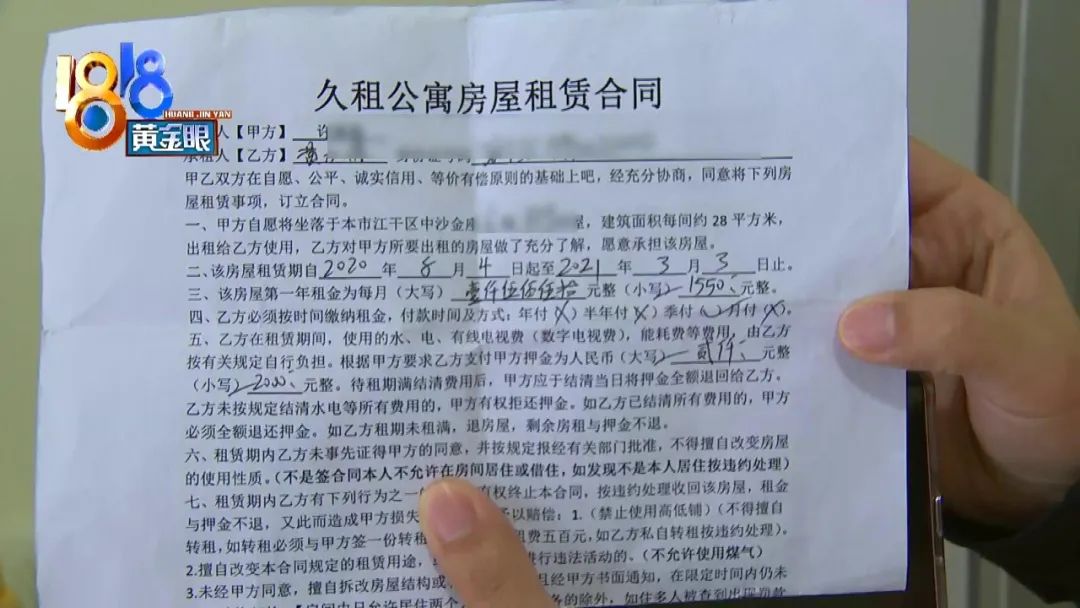 1818
HUANG JIN YAN
黄金眼
久租公寓房屋租赁合同
人【甲方】 许
承租人【乙方】 黄
甲乙双方在自愿、公平、诚实信用、等价有偿原则的基础上吧，经充分协商，同意将下列房
屋租赁事项，订立合同。
一、甲方自愿将坐落于本市江干区中沙金座 屋，建筑面积每间约 28 平方米，
出租给乙方使用，乙方对甲方所要出租的房屋做了充分了解，愿意承担该房屋。
二、该房屋租赁期自 2020 年 8 月 4 日起至 2021 年 3 月 3 日止。
三、该房屋第一年租金为每月（大写） 壹仟伍佰伍拾 元整（小写） 1550 元整。
四、乙方必须按时间缴纳租金，付款时间及方式：年付（X）半年付（X）季付（ ）月付（X）。
五、乙方在租赁期间，使用的水、电、有线电视费（数字电视费），能耗费等费用，由乙方
按有关规定自行负担。根据甲方要求乙方支付甲方押金为人民币（大写） 贰仟 元整
（小写） 2000 元整。待租期满结清费用后，甲方应于结清当日将押金全额退回给乙方。
乙方未按规定结清水电等所有费用的，甲方有权拒还押金。如乙方已结清所有费用的，甲方
必须全额退还押金。如乙方租期未租满，退房屋，剩余房租与押金不退。
六、租赁期内乙方未事先证得甲方的同意，并按规定报经有关部门批准，不得擅自改变房屋
的使用性质。（不是签合同本人不允许在房间居住或借住，如发现不是本人居住按违约处理）
七、租赁期内乙方有下列行为之一 有权终止本合同，按违约处理收回该房屋，租金
与押金不退，又此而造成甲方损失 予以赔偿：1.（禁止使用高低铺）（不得擅自
转租，如转租必须与甲方签一份转租 租费五百元，如乙方私自转租按违约处理）。
2.擅自改变本合同规定的租赁用途， 进行违法活动的、（不允许使用煤气）
3.未经甲方同意，擅自拆改房屋结构或 且经甲方书面通知，在限定时间内仍未
务的除外，如住多人被查到出现罚款